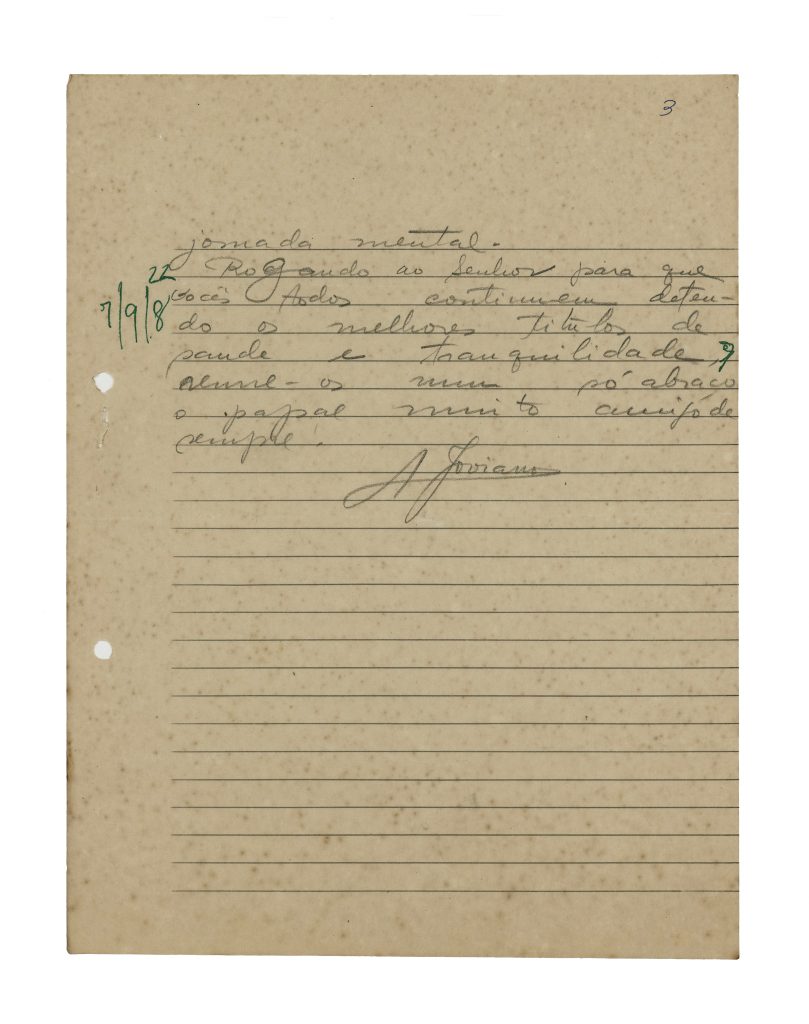 3
jornada mental.
Rogando ao Senhor para que
vocês todos continuem deten-
do os melhores titulos de
saude e tranquilidade,
reune-os num só abraço
o papae muito amigo de
sempre.
A Joviano
22
7/9/8